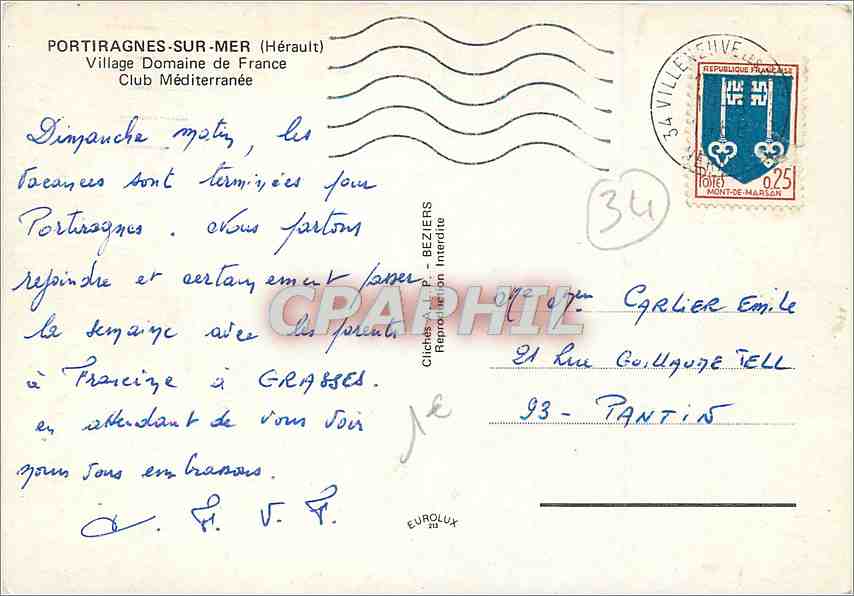 PORTIRAGNES-SUR-MER (Hérault)
Village Domaine de France
Club Méditerranée
Dimanche matin, les
vacances sont terminées pour
Portiragnes. Nous partons
rejoindre et certainement passer
la semaine avec les parents
à Francine à GRASSES.
en attendant de vous voir
nous vous embrassons.
F. V. F.
Clichés A.L.P. - BEZIERS
Reproduction Interdite
EUROLUX
213
1€
34 VILLENEUVE LES
REPUBLIQUE FRANÇAISE
POSTES
0,25
MONT-DE-MARSAN
34
CARLIER Emile
21 Rue GUILLAUME TELL
93 - PANTIN
CPAPHIL